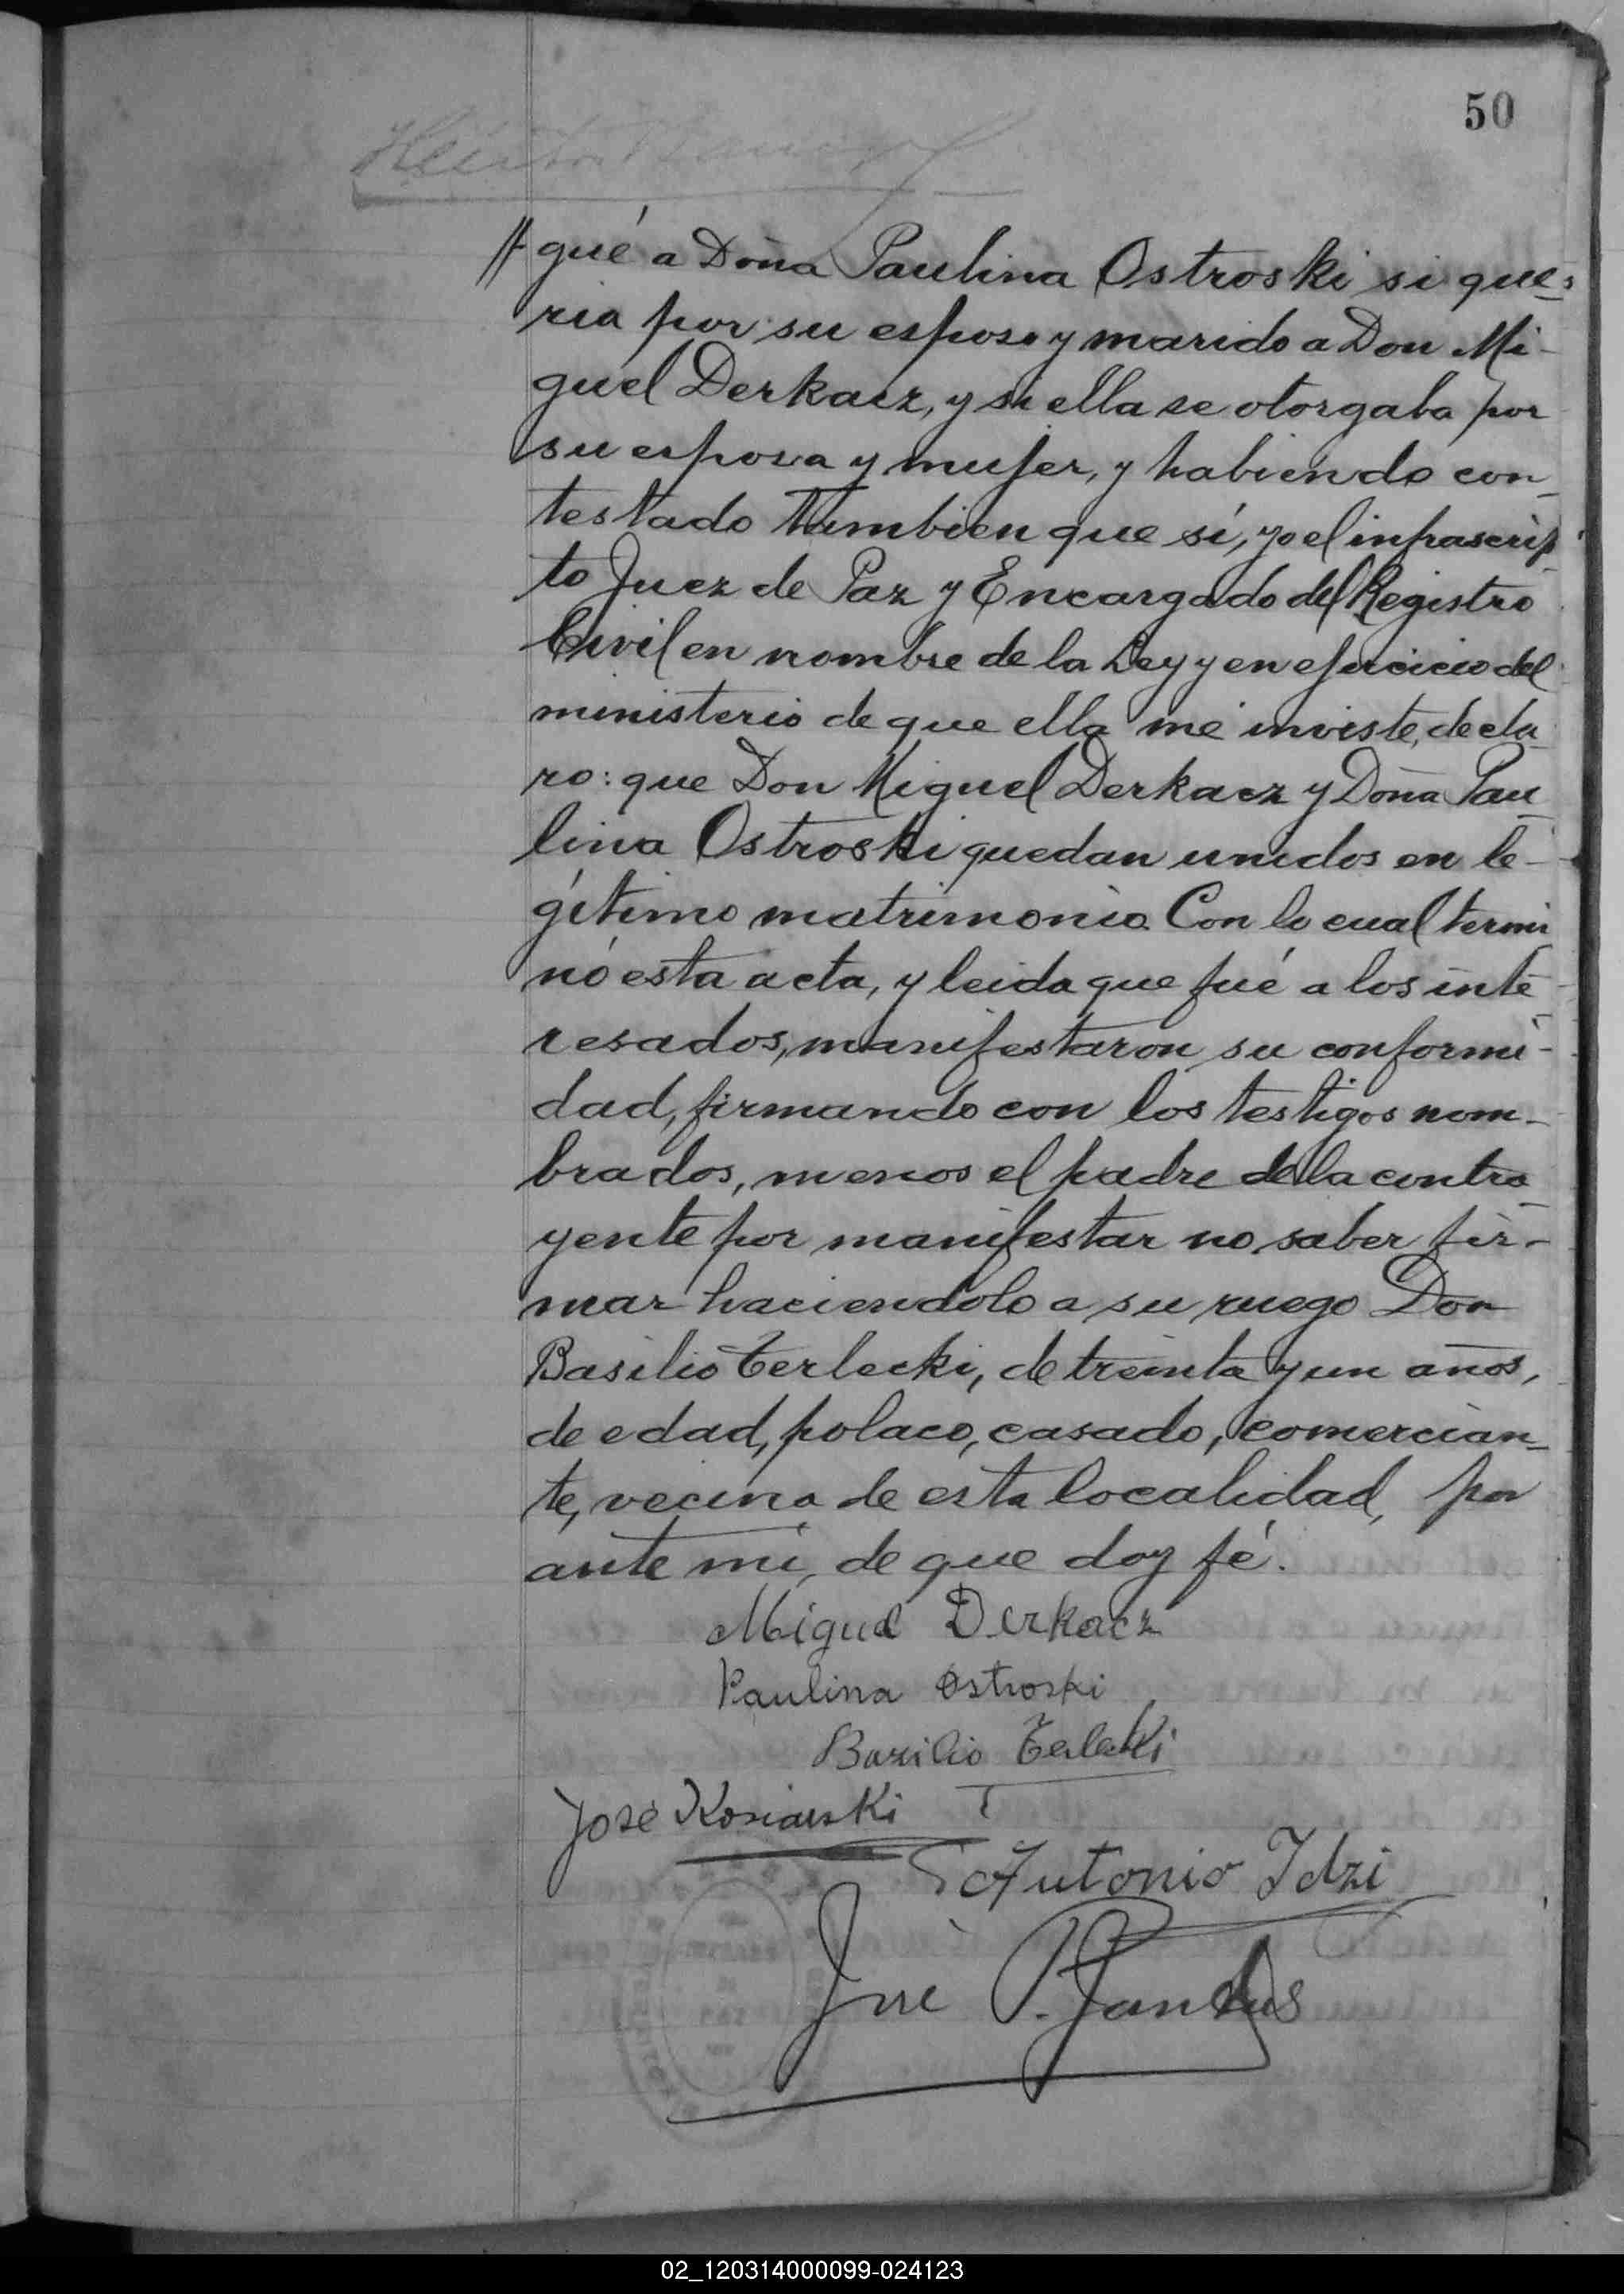 50
// qué a Doña Paulina Ostroski si que-
ria por su esposo y marido a Don Mi-
guel Derkacz, y si ella se otorgaba por
su esposa y mujer, y habiendo con-
testado tambien que sí, yo el infrascrip-
to Juez de Paz y Encargado del Registro
Civil en nombre de la Ley y en ejercicio del
ministerio de que ella me inviste, decla-
ro: que Don Miguel Derkacz y Doña Pau-
lina Ostroski quedan unidos en le-
gítimo matrimonio. Con lo cual termi
nó esta acta, y leida que fué a los inte-
resados, manifestaron su conformi-
dad, firmando con los testigos nom-
brados, menos el padre de la contra-
yente por manifestar no saber fir-
mar haciendolo a su ruego Don
Basilio Terlecki, de treinta y un años,
de edad, polaco, casado, comercian-
te, vecino de esta localidad, por
ante mi, de que doy fé.
Miguel Derkacz
Paulina Ostroski
Bazilio Terlecki
José
Antonio Idzi
José P.
02_120314000099-024123